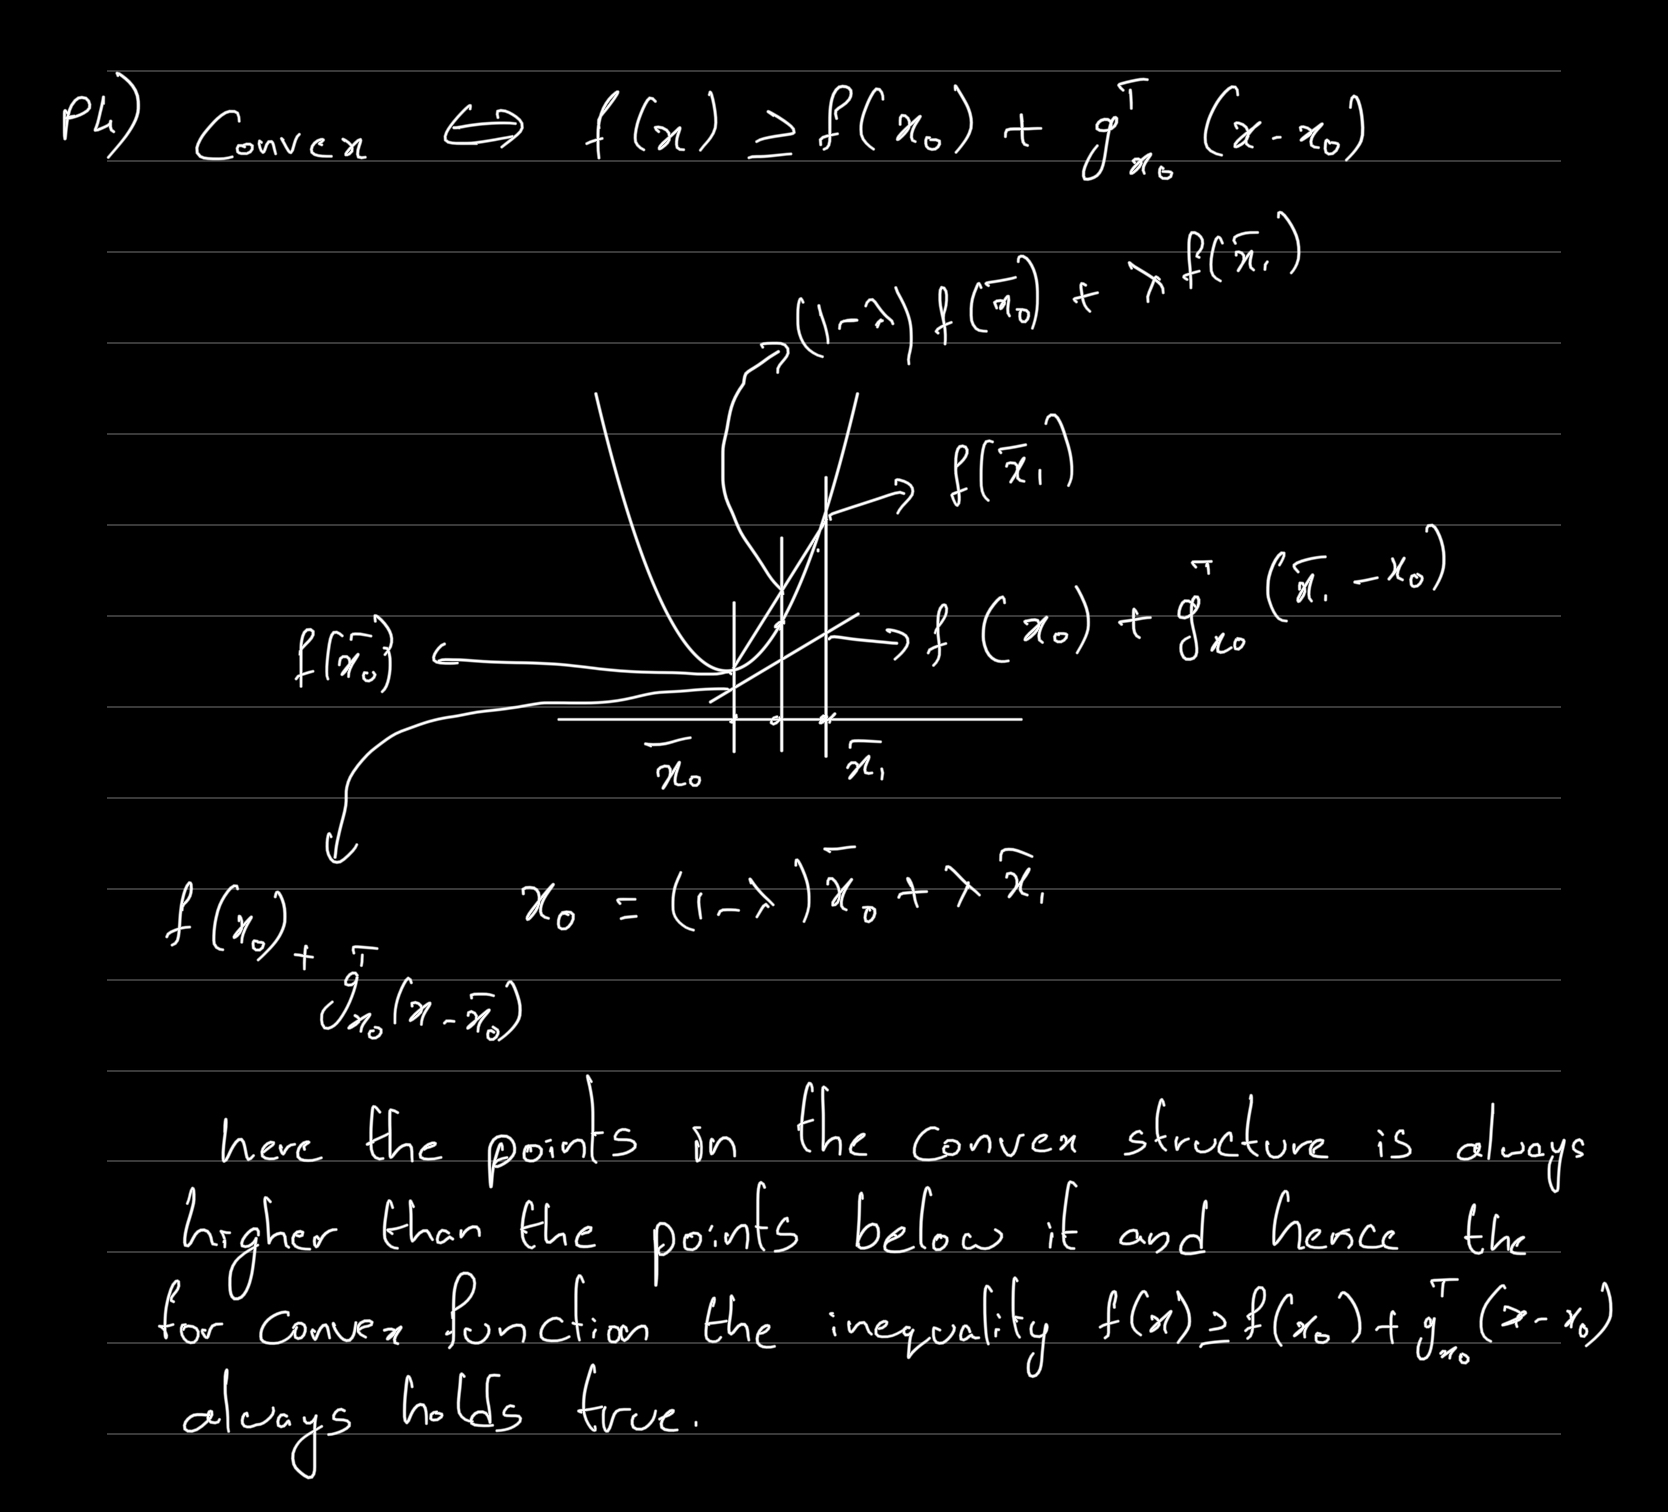 P4) Convex ⇔ f(x) ≥ f(x₀) + gᵀₓ₀ (x - x₀)
(1-λ) f(x̄₀) + λ f(x̄₁)
f(x̄₁)
f(x₀) + gᵀₓ₀ (x̄₁ - x₀)
f(x̄₀)
x̄₀ x̄₁
x₀ = (1-λ) x̄₀ + λ x̄₁
f(x₀) +
gᵀₓ₀ (x - x̄₀)
here the points in the convex structure is always
higher than the points below it and hence the
for convex function the inequality f(x) ≥ f(x₀) + gᵀₓ₀ (x - x₀)
always holds true.